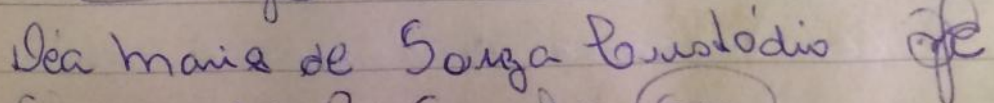 Déa maria de Souza Custódio